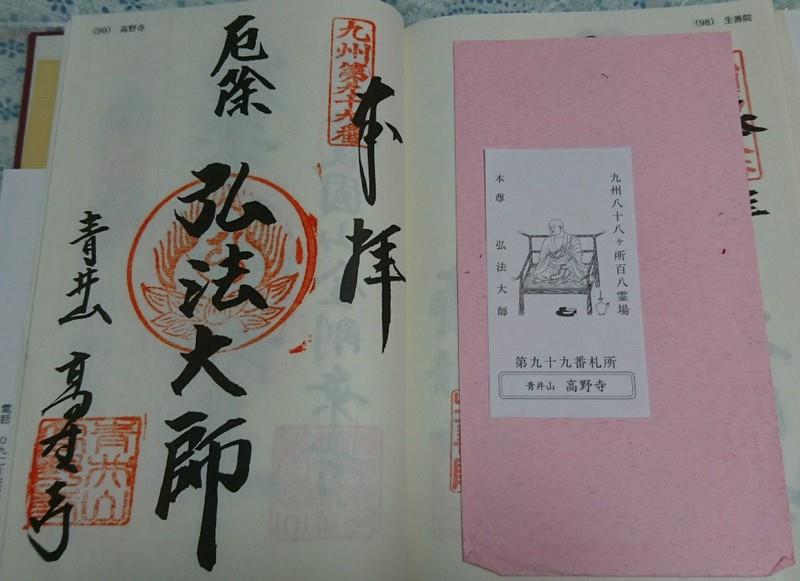 (98) 生善院
九州八十八ヶ所百八霊場
本尊 弘法大師
第九十九番札所
青井山 高野寺
(99) 高野寺
九州第九十九番
奉拝
厄除
弘法大師
青井山 高野寺
電話